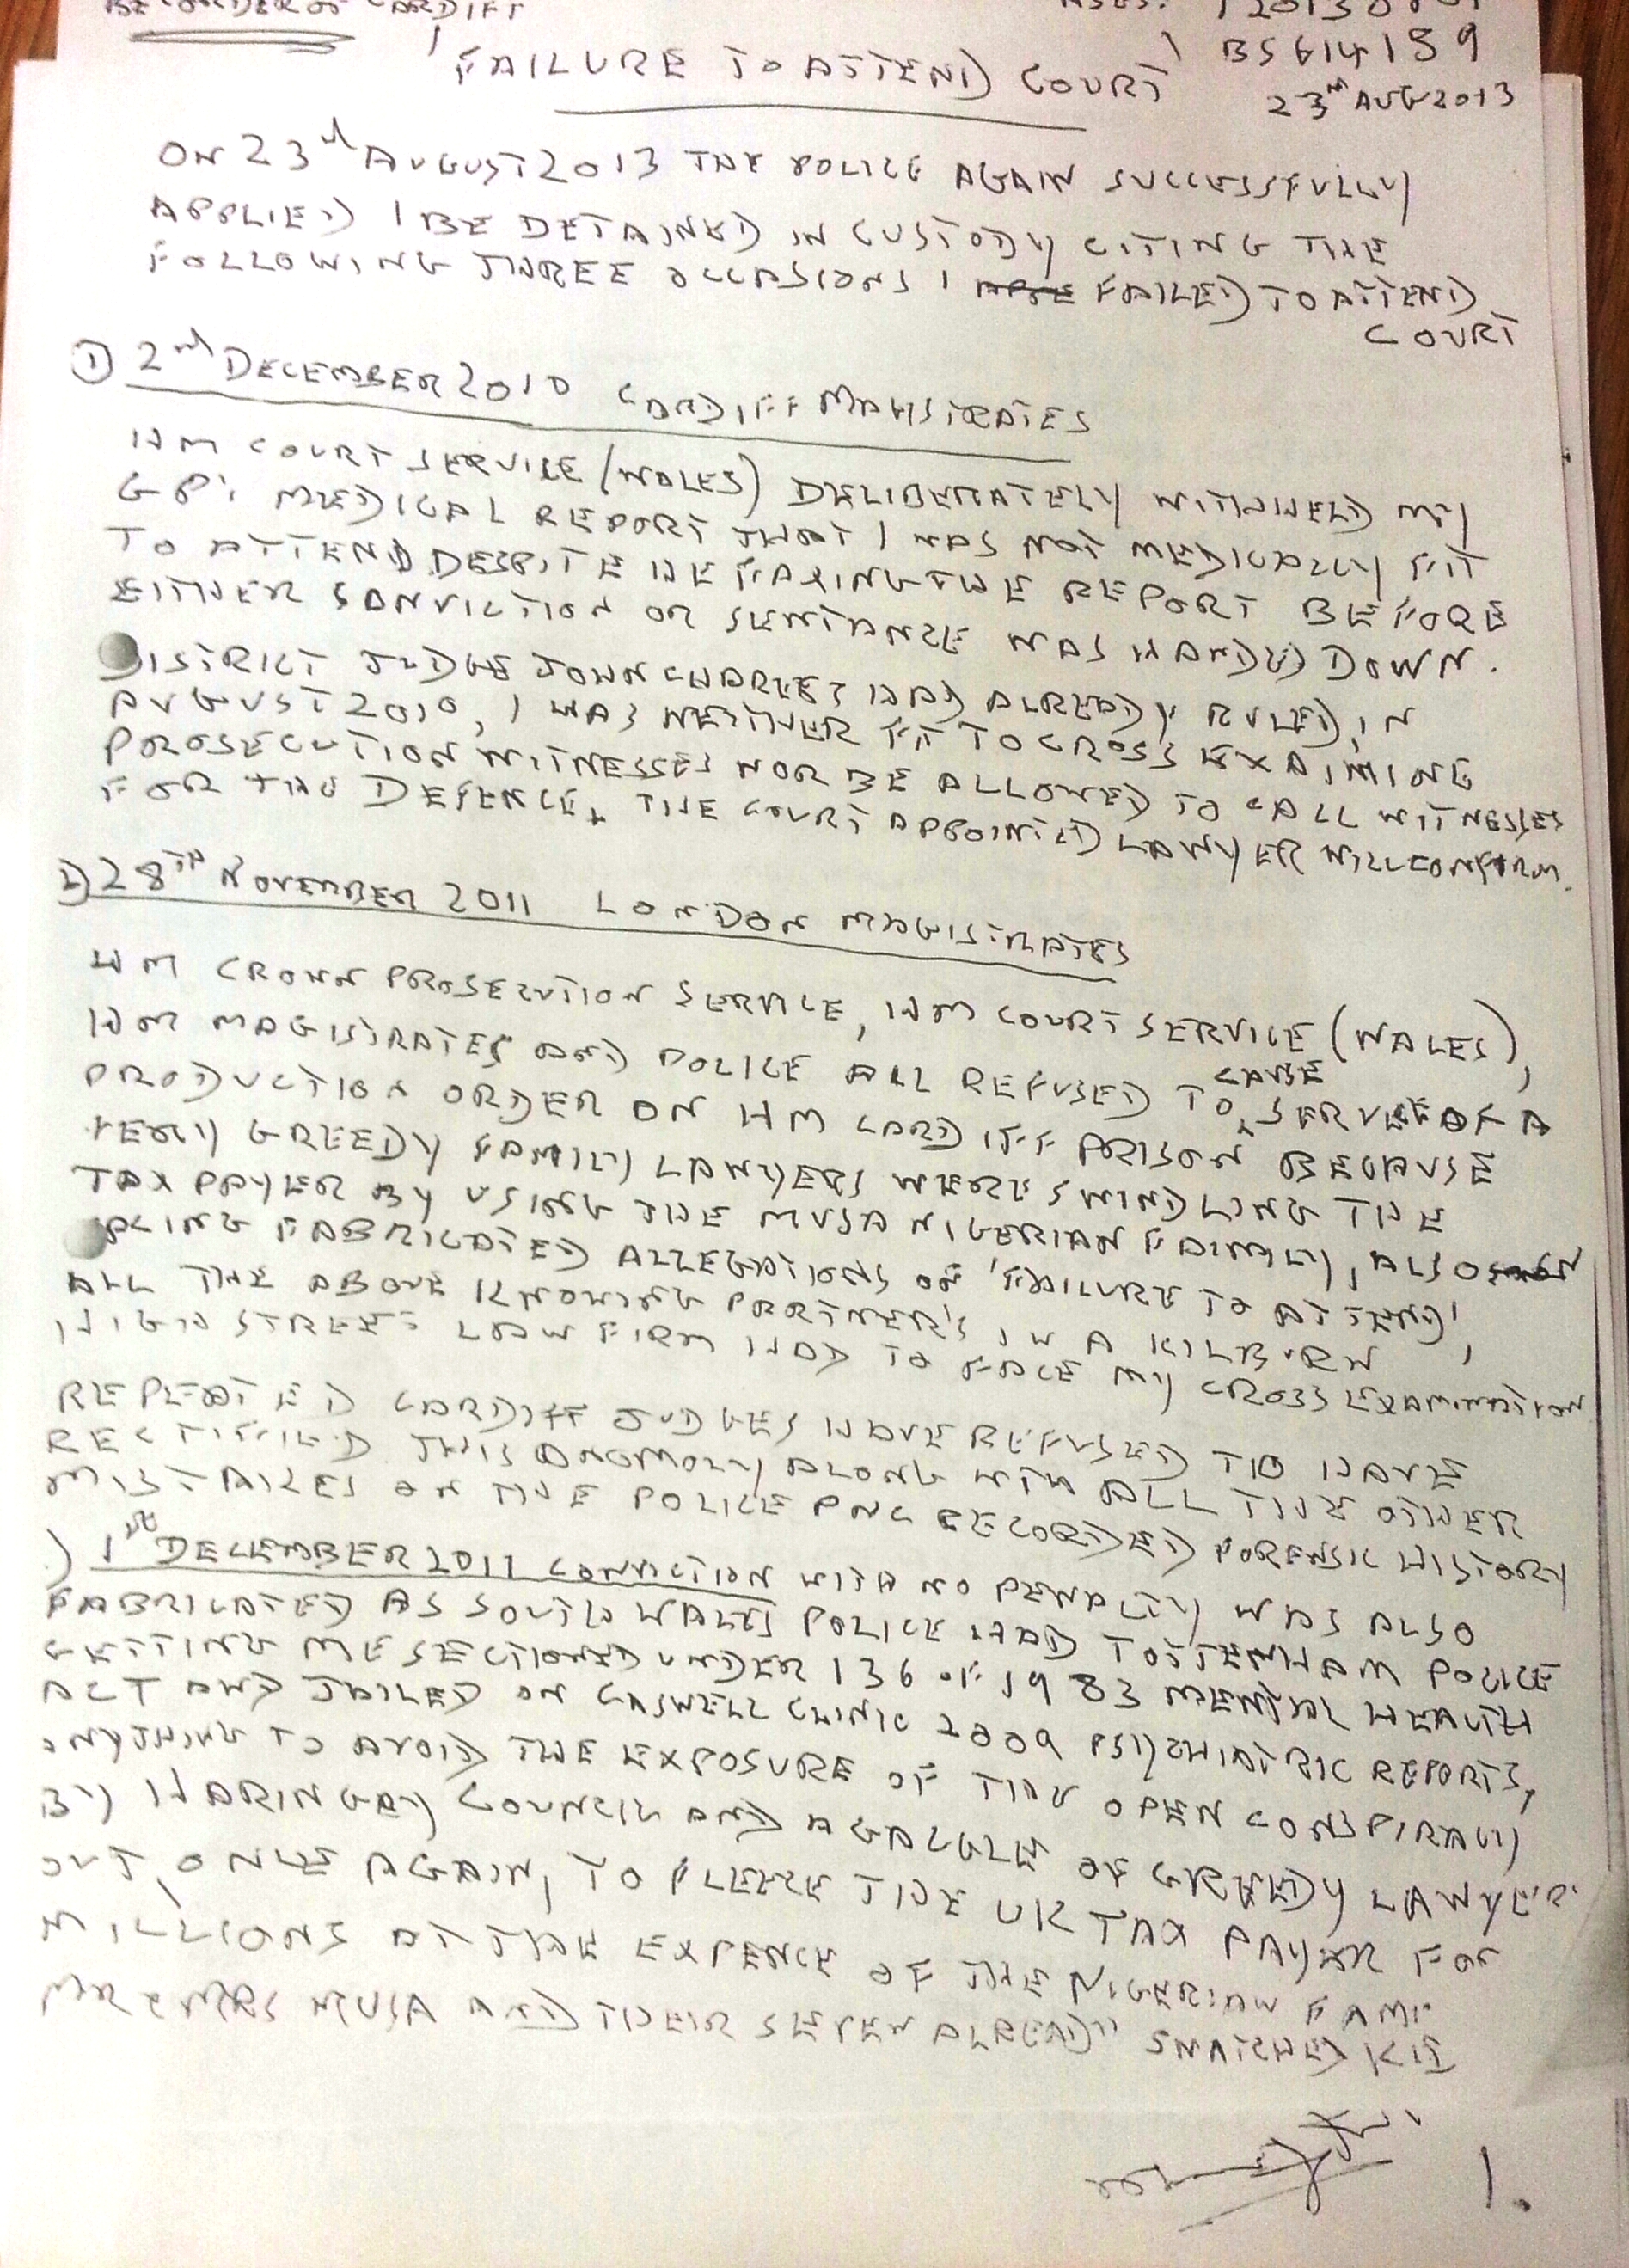 RECORDER OF CARDIFF
FAILURE TO ATTEND COURT
BS614159
23rd AUG 2013
ON 23rd AUGUST 2013 THE POLICE AGAIN SUCCESSFULLY
APPLIED I BE DETAINED IN CUSTODY CITING THE
FOLLOWING THREE OCCASIONS I FAILED TO ATTEND
COURT
1) 2nd DECEMBER 2010 CARDIFF MAGISTRATES
HM COURT SERVICE (WALES) DELIBERATELY WITHHELD MY
GP'S MEDICAL REPORT THAT I WAS NOT MEDICALLY FIT
TO ATTEND DESPITE HE FAXING THE REPORT BEFORE
EITHER CONVICTION OR SENTANCE WAS HANDED DOWN.
DISTRICT JUDGE JOHN CHARLES HAD ALREADY RULED, IN
AUGUST 2010, I WAS NEITHER FIT TO CROSS EXAIMINE
PROSECUTION WITNESSES NOR BE ALLOWED TO CALL WITNESSES
FOR THE DEFENCE, THE COURT APPOINTED LAWYER WILL CONFIRM.
2) 28TH NOVEMBER 2011 LONDON MAGISTRATES
HM CROWN PROSECUTION SERVICE, HM COURT SERVICE (WALES),
HM MAGISTRATES AND POLICE ALL REFUSED TO CAUSE SERVICE OF A
PRODUCTION ORDER ON HM CARDIFF PRISON BECAUSE
VERY GREEDY FAMILY LAWYERS WERE SWINDLING THE
TAX PAYER BY USING THE MUSA NIGERIAN FAIMLY, ALSO
FABRICATED ALLEGATIONS OF 'FAILURE TO ATTEND',
ALL THE ABOVE KNOWING PARTNER'S IN A KILBURN
HIGH STREET LAW FIRM HAD TO FACE MY CROSS EXAMINATION
REPEATED CARDIFF JUDGES HAVE REFUSED TO HAVE
RECTIFIED THIS ANOMOLY ALONG WITH ALL THE OTHER
MISTAKES ON THE POLICE PNC RECORDED FORENSIC HISTORY
) 1st DECEMBER 2011 CONVICTION WITH NO PENALTY WAS ALSO
FABRICATED AS SOUTH WALES POLICE HAD TOTTENHAM POLICE
GETTING ME SECTIONED UNDER 136 OF 1983 MENTAL HEALTH
ACT AND JAILED ON CASWELL CLINIC 2009 PSYCHIATRIC REPORTS,
ANYTHING TO AVOID THE EXPOSURE OF THE OPEN CONSPIRACY
BY HARINGEY COUNCIL AND A GAGGLE OF GREEDY LAWYER
OUT, ONCE AGAIN, TO FLEECE THE UK TAX PAYER FOR
MILLIONS AT THE EXPENCE OF THE NIGERIAN FAMI
MR & MRS MUSA AND THEIR SEVEN ALREADY SNATCHED KI
1.